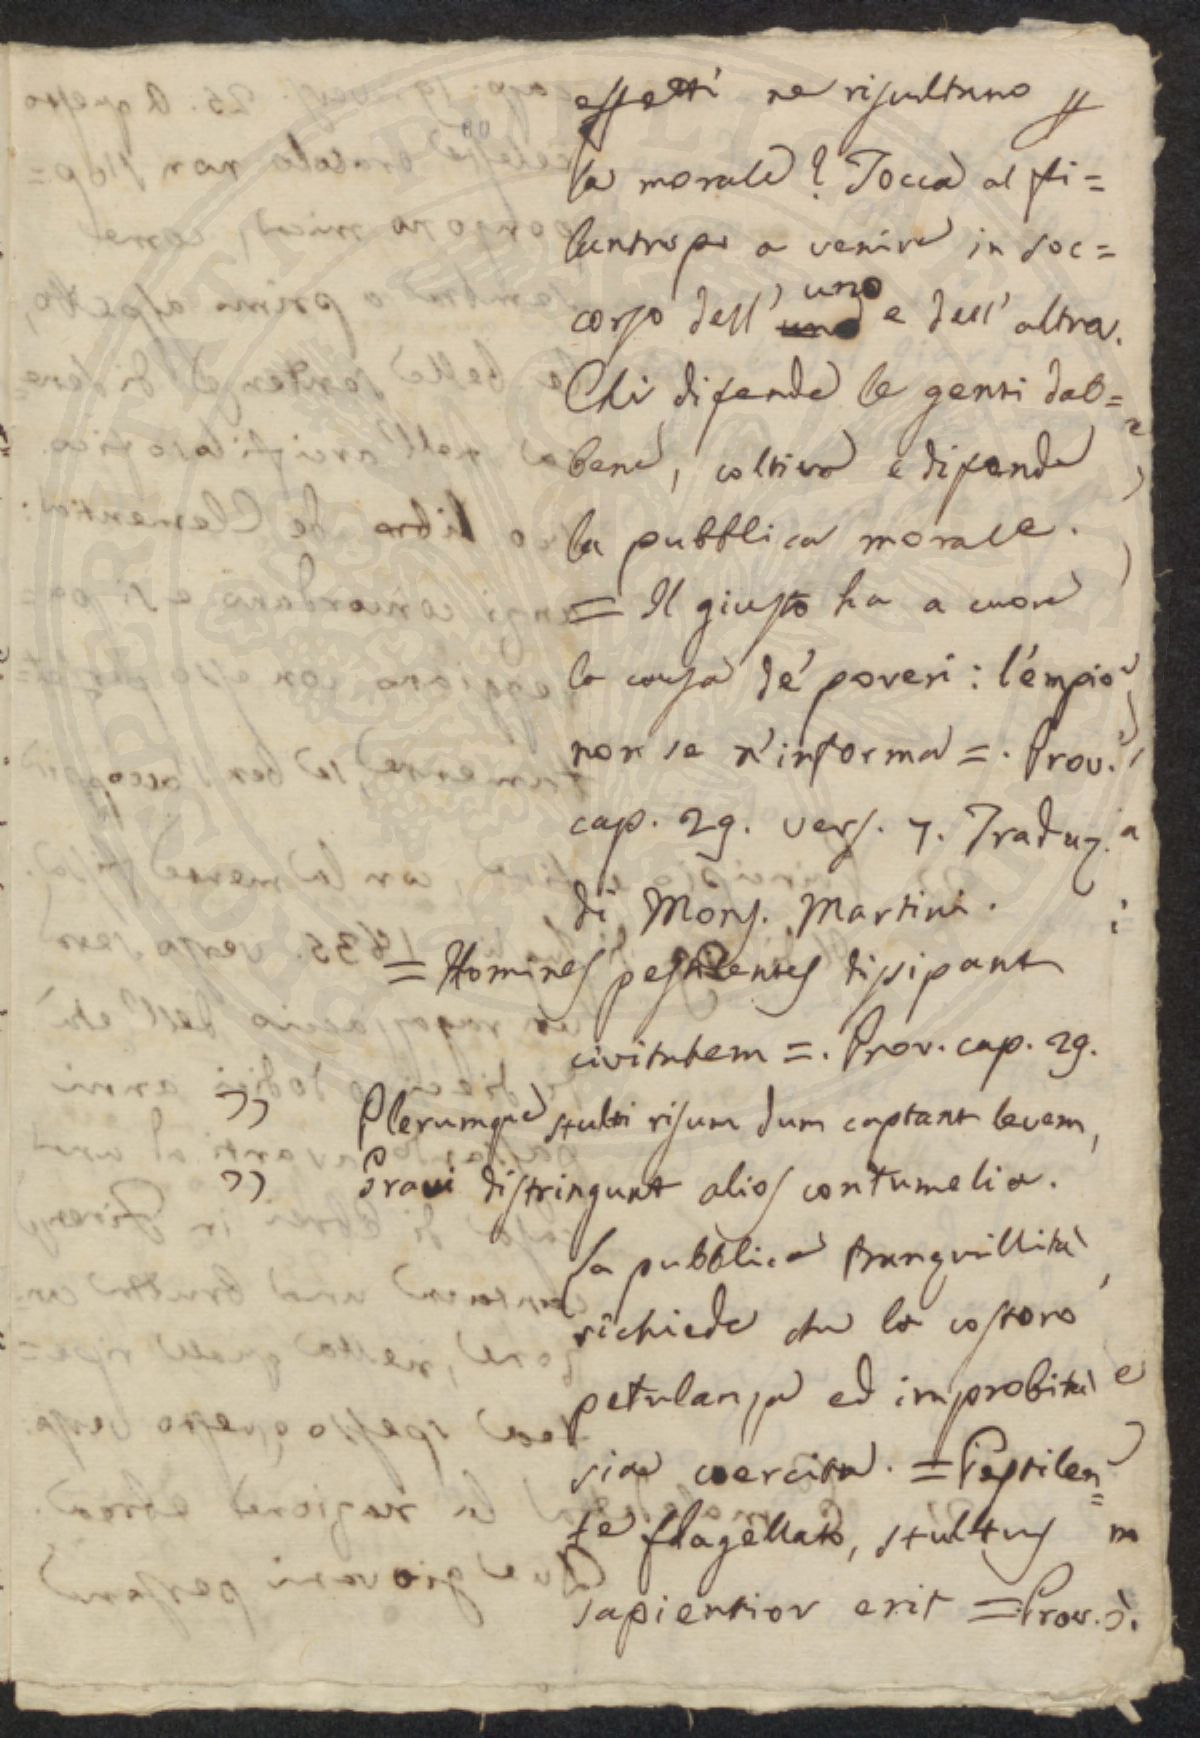 effetti ne risultano #
la morale? Tocca al fi=
lantropo a venire in soc=
corso dell' uno e dell' altra.
Chi difende le genti dab=
bene, coltiva e difende
la pubblica morale.
= Il giusto ha a cuore
la causa de' poveri: l'empio
non se n'informa =. Prov.
cap. 29. vers. 7. Traduz.
di Mons. Martini.
= Homines pestilentes dissipant
civitatem =. Prov. cap. 29.
" Plerumque stulti risum dum captant levem,
" Gravi distringunt alios contumelia.
La pubblica tranquillità
richiede che la costoro
petulanza ed improbità
sia coercita. = Pestilen=
te flagellato, stultus
sapientior erit = Prov.